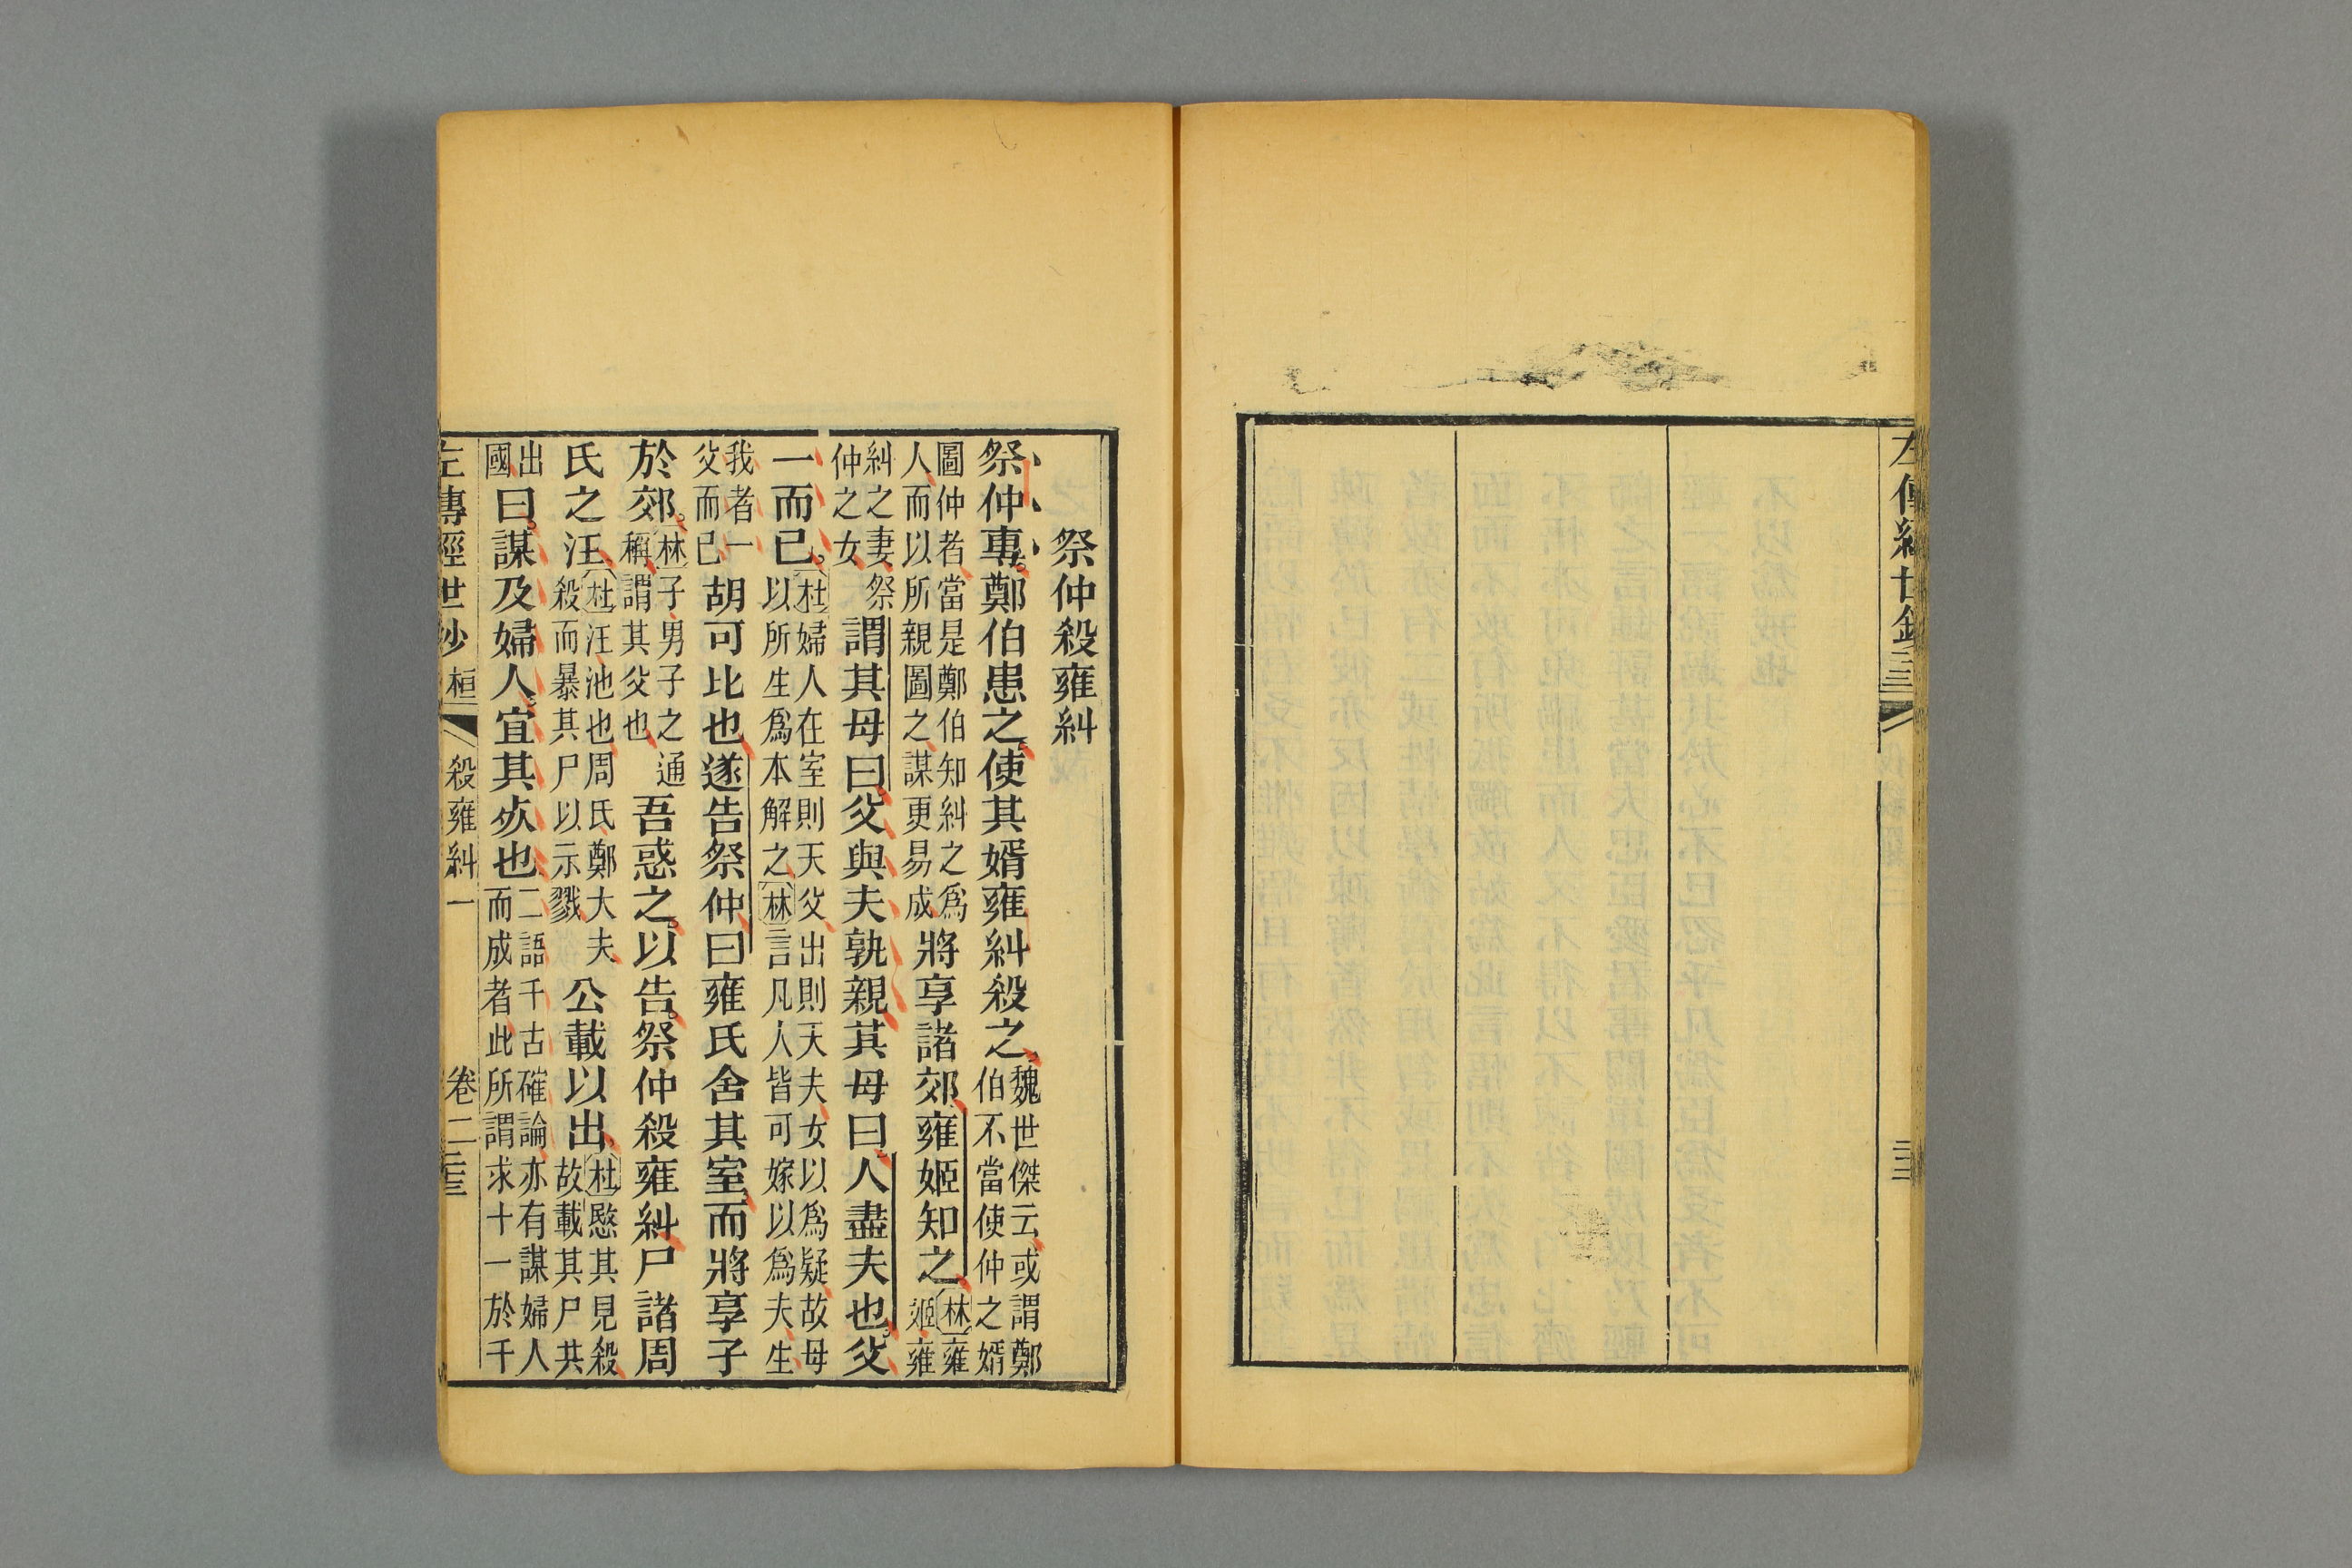 祭仲殺雍糾
祭仲專鄭伯患之使其婿雍糾殺之魏世傑云或謂鄭伯不當使仲之婿
圖仲者當是鄭伯知糾之爲人而以所親圖之謀更易成將享諸郊雍姬知之林雍姬雍
糾之妻祭仲之女謂其母曰父與夫孰親其母曰人盡夫也父
一而已杜婦人在室則天父出則天夫女以爲疑故母以所生爲本解之林言凡人皆可嫁以爲夫生
我者一父而已胡可比也遂告祭仲曰雍氏舍其室而將享子
於郊林子男子之通稱謂其父也吾惑之以告祭仲殺雍糾尸諸周
氏之汪杜汪池也周氏鄭大夫殺而暴其尸以示戮公載以出杜愍其見殺故載其尸共
出國曰謀及婦人宜其死也二語千古確論亦有謀婦人而成者此所謂求十一於千
左傳經世鈔 桓 殺雍糾一 卷二 三三